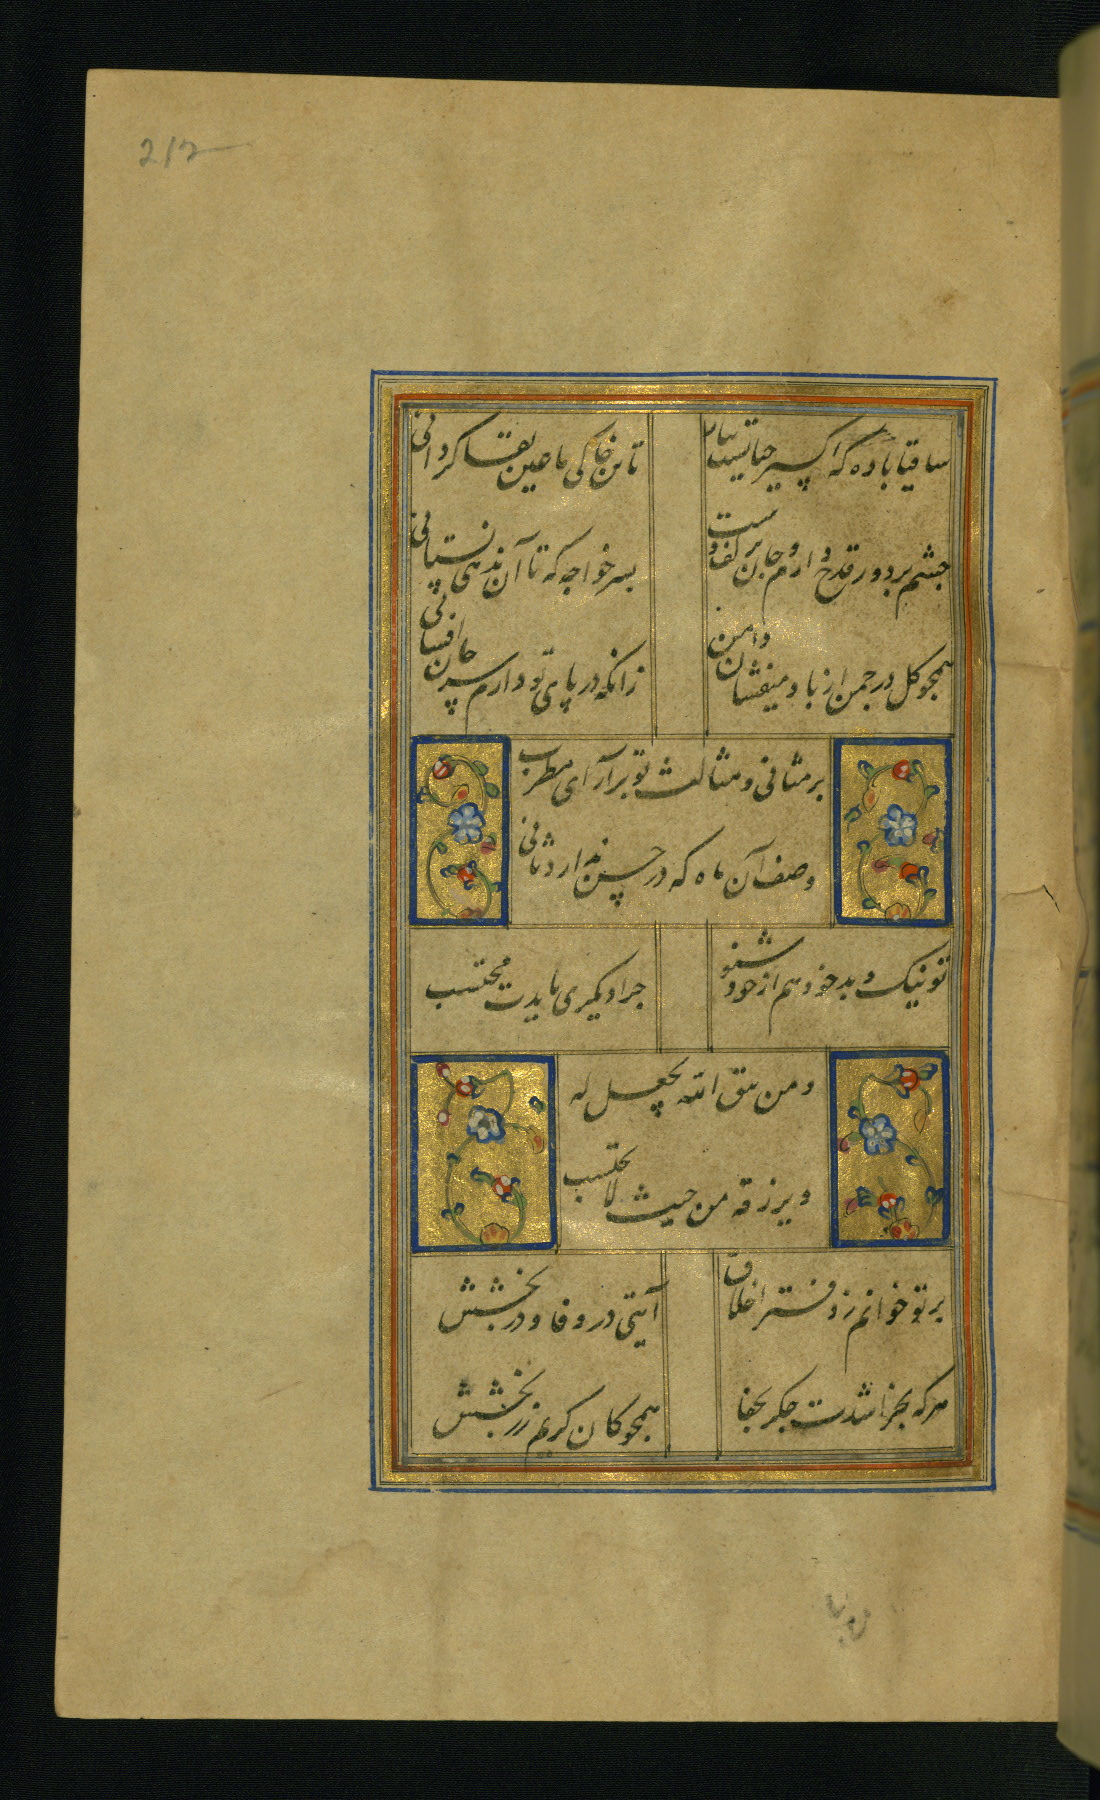 212
ساقیا باده که اکسیر حیاتست بیار
تا تن خاکی ما عین بقا گردانی
چشم بر دور قدح دارم و جان بر کف دست
بسر خواجه که تا آن ندهی نستانی
همچو گل در چمن از باد میفشان دامن
زانکه در پای تو دارم سر جان افشانی
بر مثانی و مثالث تو برآر ای مطرب
وصف آن ماه که در حسن ندارد ثانی
تو نیک و بد خود هم از خود شنو
چرا دیگری بایدت محتسب
و من یتق الله یجعل له
و یرزقه من حیث لا یحتسب
بر تو خوانم ز دفتر اخلاق
آیتی در وفا و در بخشش
هر که بخراشدت جگر بجفا
همچو کان کریم زر بخشش